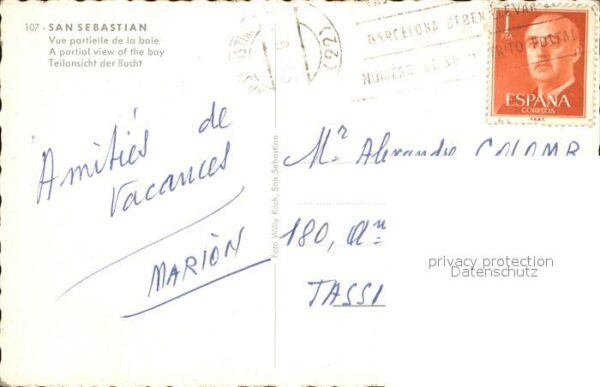 107 - SAN SEBASTIAN
Vue partielle de la baie
A partial view of the bay
Teilansicht der Bucht
(22)
BARCELONA DEBEN LLEVAR
DISTRITO POSTAL
NUMERO DE SU
1
PTA
ESPAÑA
CORREOS
F.N.M.T.
Amitiés de
Vacances
MARION
Foto Willy Koch, San Sebastian
Mr Alexandre COLOMB
180, An
TASSI
privacy protection
Datenschutz